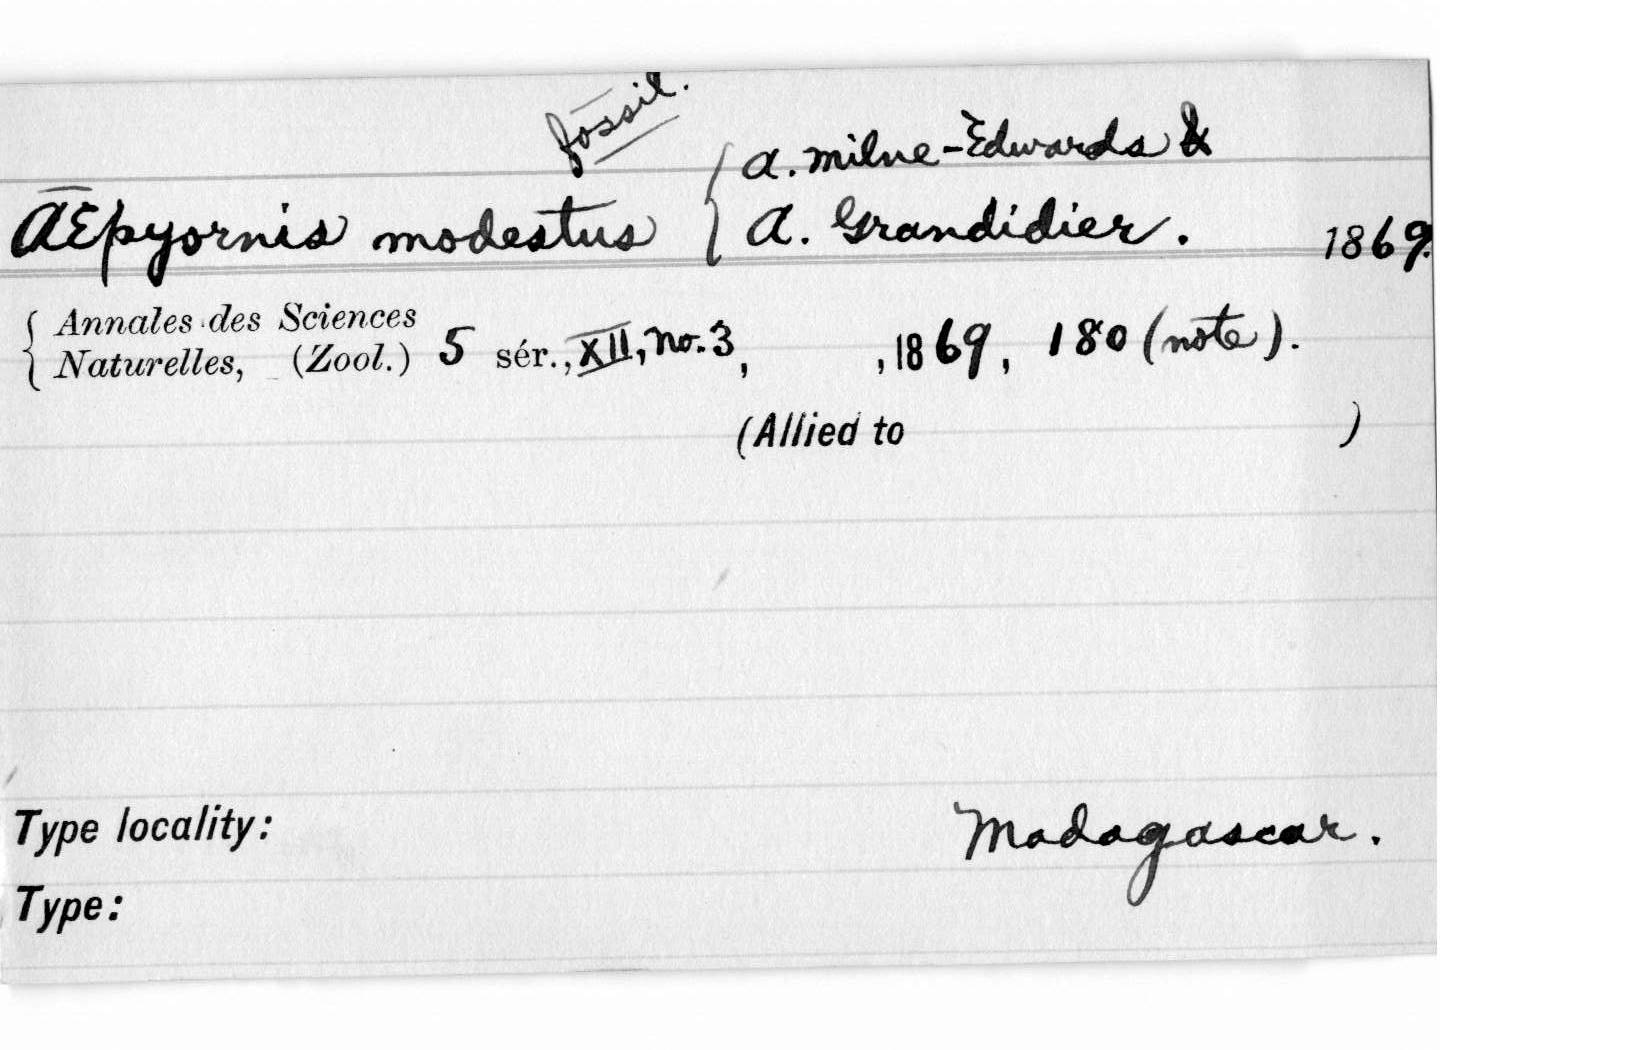 fossil.
{ A. Milne-Edwards &
ÆEpyornis modestus { A. Grandidier. 1869.
{ Annales des Sciences
Naturelles, (Zool.) 5 sér., XII, no. 3, , 1869, 180 (note).
(Allied to )
Type locality: Madagascar.
Type: